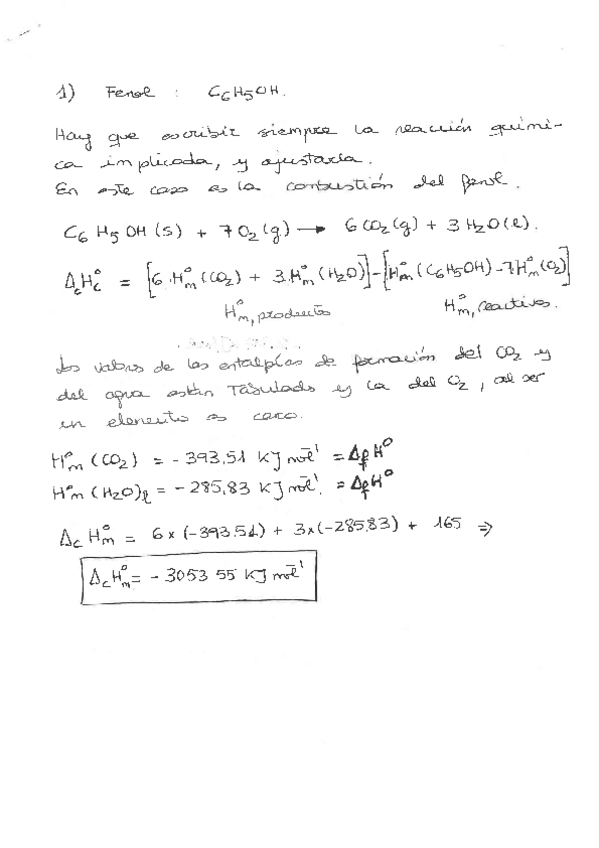 1) Fenol : C6H5OH.
Hay que escribir siempre la reacción quími-
ca implicada, y ajustarla.
En este caso es la combustión del fenol.
C6H5OH (s) + 7O2(g) → 6CO2(g) + 3H2O(l).
ΔcH°c = [6.H°m(CO2) + 3.H°m(H2O)]-[H°m(C6H5OH)-7H°m(O2)]
H°m,productos H°m,reactivos.
Los valores de las entalpías de formación del CO2 y
del agua están Tabulado y la del O2, al ser
un elemento es cero.
H°m(CO2) = -393,51 KJ mol⁻¹ = ΔfH°
H°m(H2O)l = -285,83 KJ mol⁻¹. = ΔfH°
ΔcH°m = 6x(-393.51) + 3x(-285,83) + 165 ⇒
ΔcH°m = - 3053 55 KJ mol⁻¹